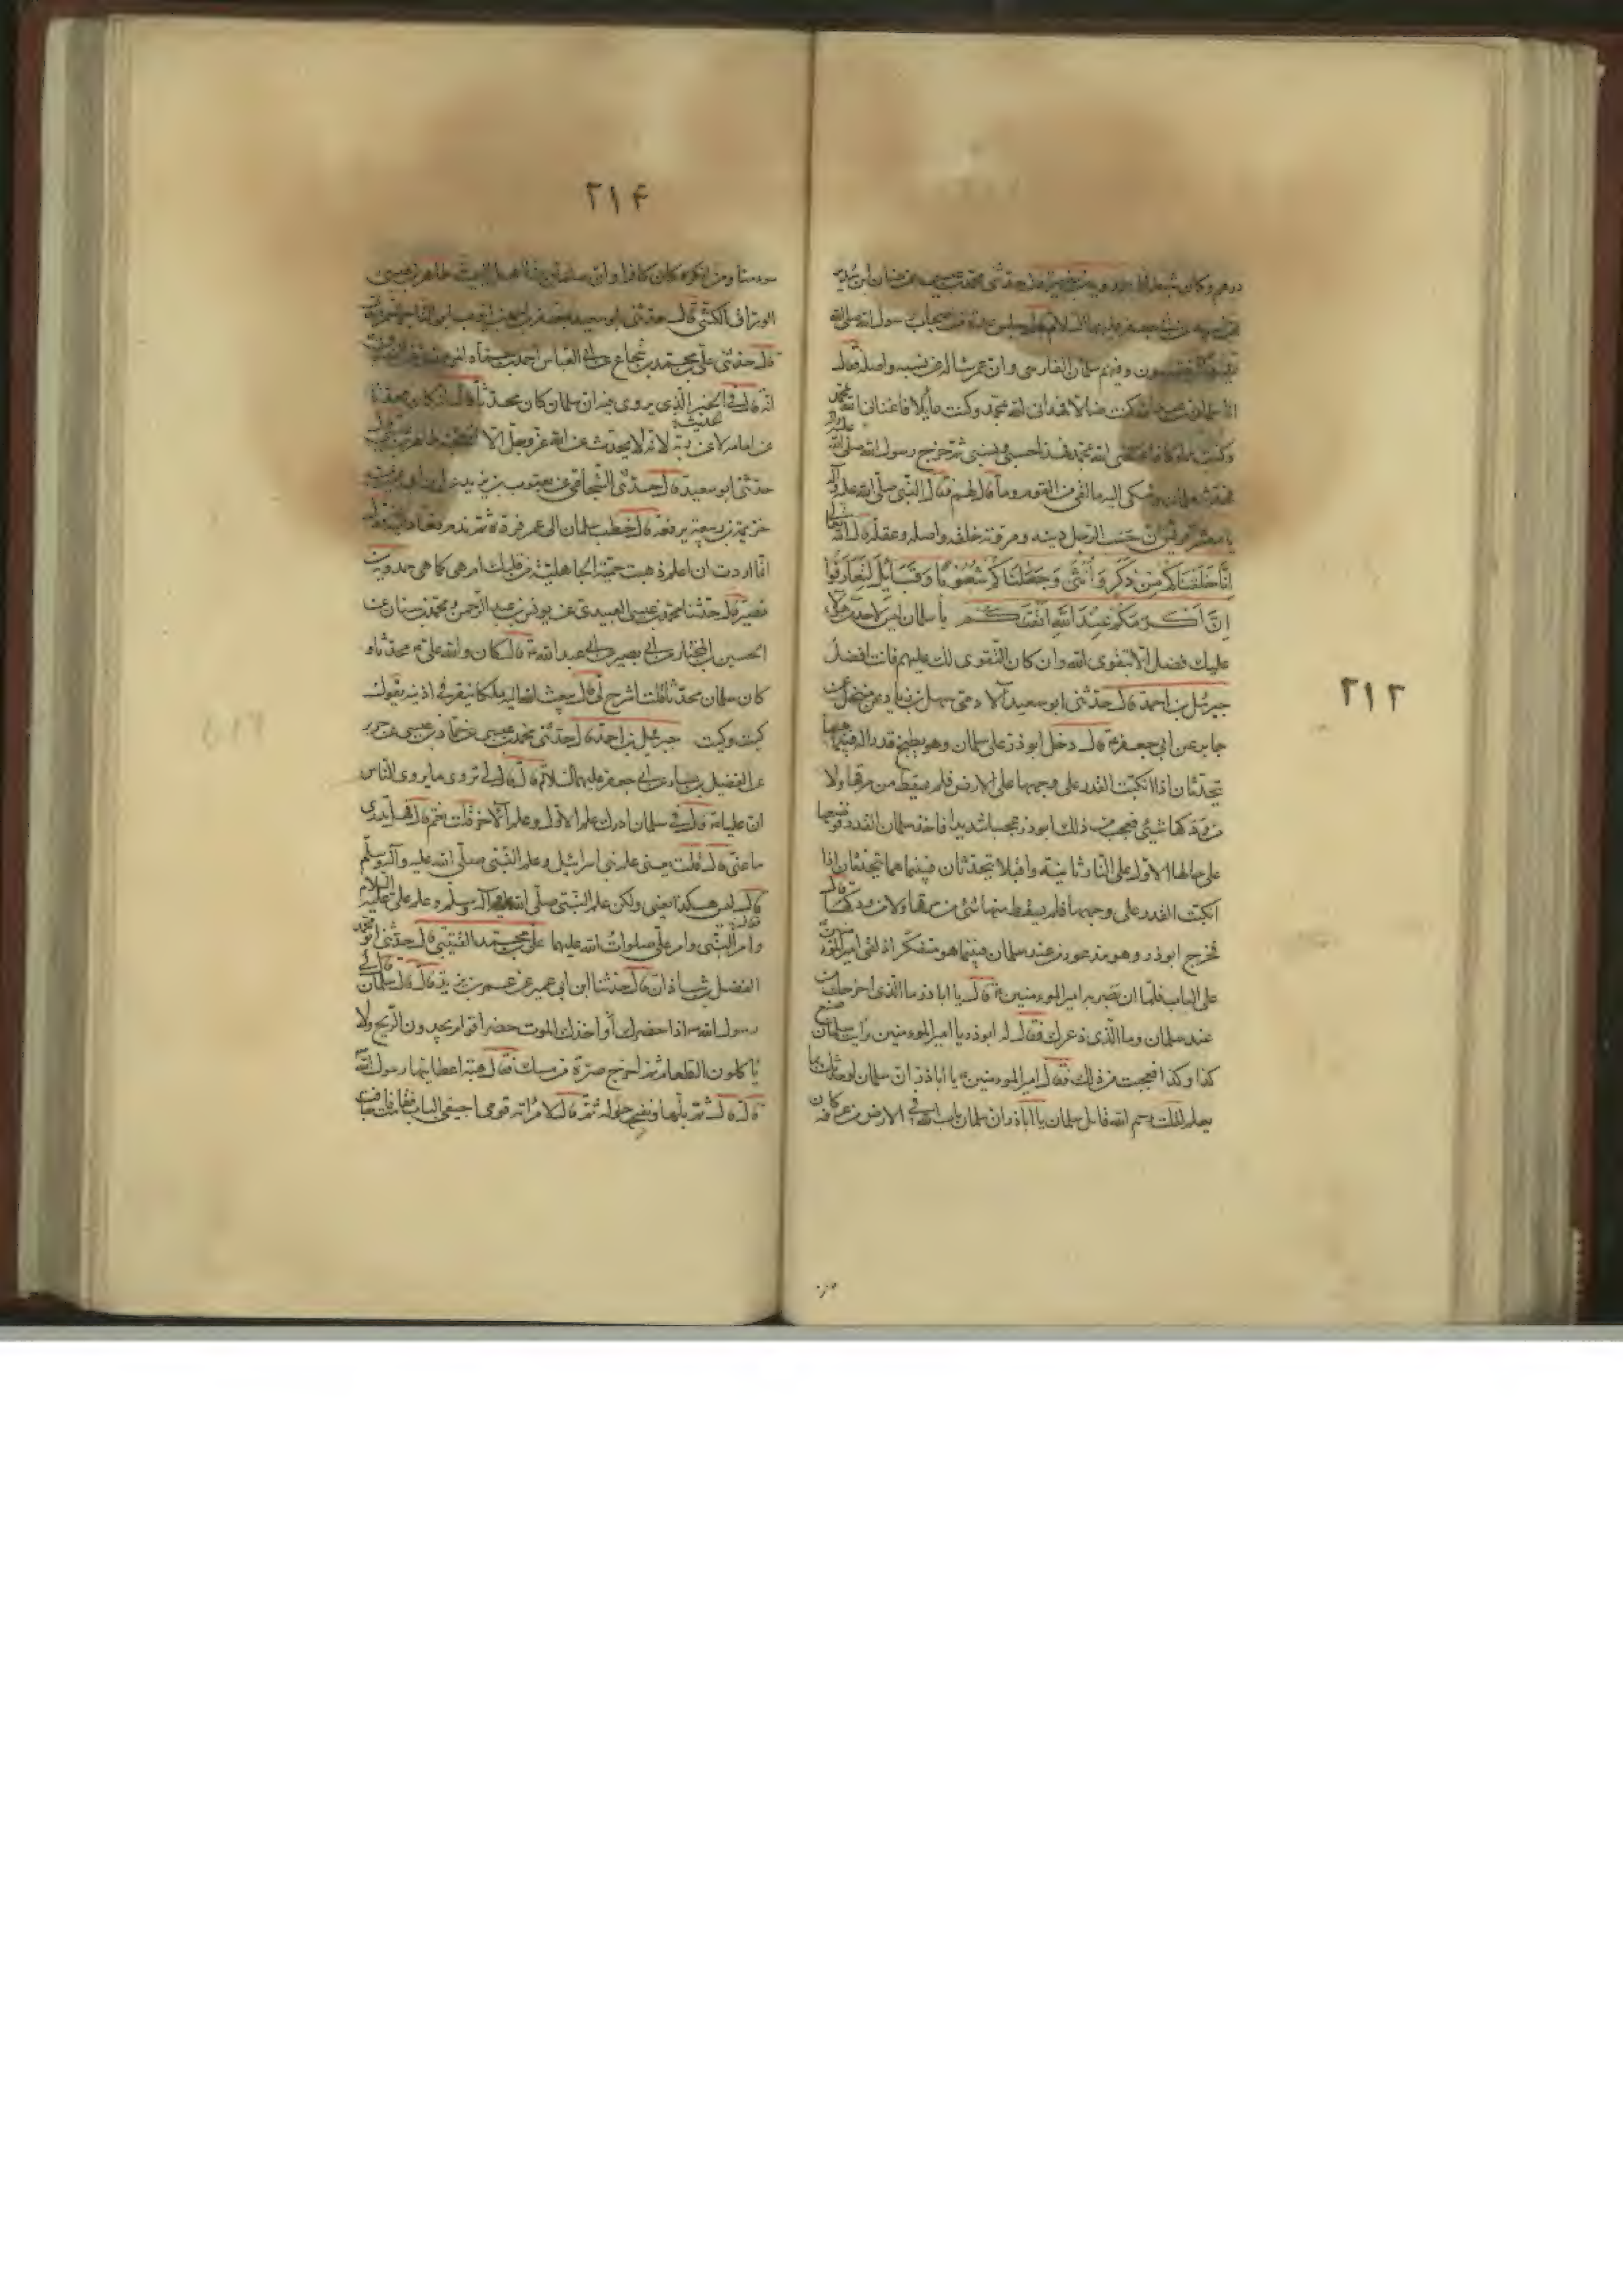 ٢١٣
درهم وكان حدثنى محمد بن عن حنان بن سدير
عن ابيه عن ابى جعفر عليه السلام قال جلس عدة من اصحاب رسول الله صلى الله
ينتسبون وفيهم سلمان الفارسى وان عمر سأله عن نسبه واصله فقال
انا سلمان بن عبد الله كنت ضالا فهدانى الله بمحمد وكنت عايلا فاغنانى الله بمحمد
وكنت مملوكا فاعتقنى الله بمحمد فهذا حسبى ونسبى ثم خرج رسول الله صلى الله عليه وآله
فحدثه سلمان وشكى اليه ما لقى من القوم وما قال لهم فقال النبى صلى الله عليه وآله
يا معشر قريش ان حسب الرجل دينه ومروته خلقه واصله عقله قال الله تعالى
انا خلقناكم من ذكر وانثى وجعلناكم شعوبا وقبايل لتعارفوا
ان اكرمكم عند الله اتقيكم يا سلمان ليس لاحد من هؤلاء
عليك فضل الا بتقوى الله وان كان التقوى لك عليهم فانت افضل
جبرئيل بن احمد قال حدثنى ابو سعيد الآدمى سهل بن زياد عن منخل عن
جابر عن ابى جعفر ع قال دخل ابو ذر على سلمان وهو يطبخ قدرا له فبينما هما
يتحدثان اذ انكبت القدر على وجهها على الارض فلم يسقط من مرقها ولا
من ودكها شيئ فعجب من ذلك ابو ذر عجبا شديدا فاخذ سلمان القدر فوضعها
على حالها الاول على النار ثانية واقبلا يتحدثان فبينما هما يتحدثان اذا
انكبت القدر على وجهها فلم يسقط منها شئ من مرقها ولا من ودكها قال
فخرج ابو ذر وهو مذعور من عند سلمان فبينما هو متفكر اذ لقى امير المؤمنين
على الباب فلما ان بصر به امير المؤمنين ع قال يا ابا ذر ما الذى اخرجك من
عند سلمان وما الذى ذعرك فقال له ابو ذر يا امير المؤمنين رايت سلمان صنع
كذا وكذا فعجبت من ذلك فقال امير المؤمنين ع يا ابا ذر ان سلمان لو حدثك بما
يعلم لقلت رحم الله قاتل سلمان يا ابا ذر ان سلمان باب الله فى الارض من عرفه كان
٢١۴
مؤمنا ومن انكره كان كافرا وان سلمان منا اهل البيت طاهر بن عيسى
الوراق الكشى قال حدثنى ابو سعيد جعفر بن
قال حدثنى على بن محمد بن شجاع عن ابى العباس احمد بن حماد
انه قال فى الخبر الذى يروى فيه ان سلمان كان محدثا قال انه كان محدثا
عن امامه لا عن ربه لانه لا يحدث عن الله عز وجل الا الحجة طاهر بن عيسى
حدثنى ابو سعيد قال حدثنى الشجاعى عن يعقوب بن يزيد عن
خزيمة بن ربيعة يرفعه قال خطب سلمان الى عمر فرده ثم ندم فعاد اليه فقال
انما اردت ان اعلم ذهبت حمية الجاهلية من قلبك ام هى كما هى حمدويه بن
نصير قال حدثنا محمد بن عيسى العبيدى عن يونس بن عبد الرحمن ومحمد بن سنان عن
الحسين بن المختار عن ابى بصير عن ابى عبد الله ع قال كان والله على ع محدثا و
كان سلمان محدثا قلت اشرح لى قال يبعث الله اليه ملكا ينقر فى اذنيه يقول
كيت وكيت جبرئيل بن احمد قال حدثنى محمد بن عيسى عن حماد بن عيسى عن حريز
عن الفضيل بن يسار عن ابى جعفر عليهما السلام قال قال لى تروى ما يروى الناس
ان عليا ع قال فى سلمان ادرك علم الاول وعلم الآخر قلت نعم قال فهل تدرى
ما عنى قال قلت يعنى علم بنى اسرائيل وعلم النبى صلى الله عليه وآله وسلم
قال ليس هكذا يعنى ولكن علم النبى صلى الله عليه وآله وسلم وعلم على عليه السلام
وامر النبى وامر على صلوات الله عليهما على بن محمد القتيبى قال حدثنى ابو محمد
الفضل بن شاذان قال حدثنا ابن ابى عمير عن عمر بن يزيد قال قال سلمان قال لى
رسول الله ص اذا حضرك أو اخذك الموت حضر اقوام يجدون الريح ولا
يأكلون الطعام ثم اخرج صرة من مسك فقال هبة اعطانيها رسول الله
قال ثم بلها ونضحها حوله ثم قال لامراته قومى اجيفى الباب فقامت